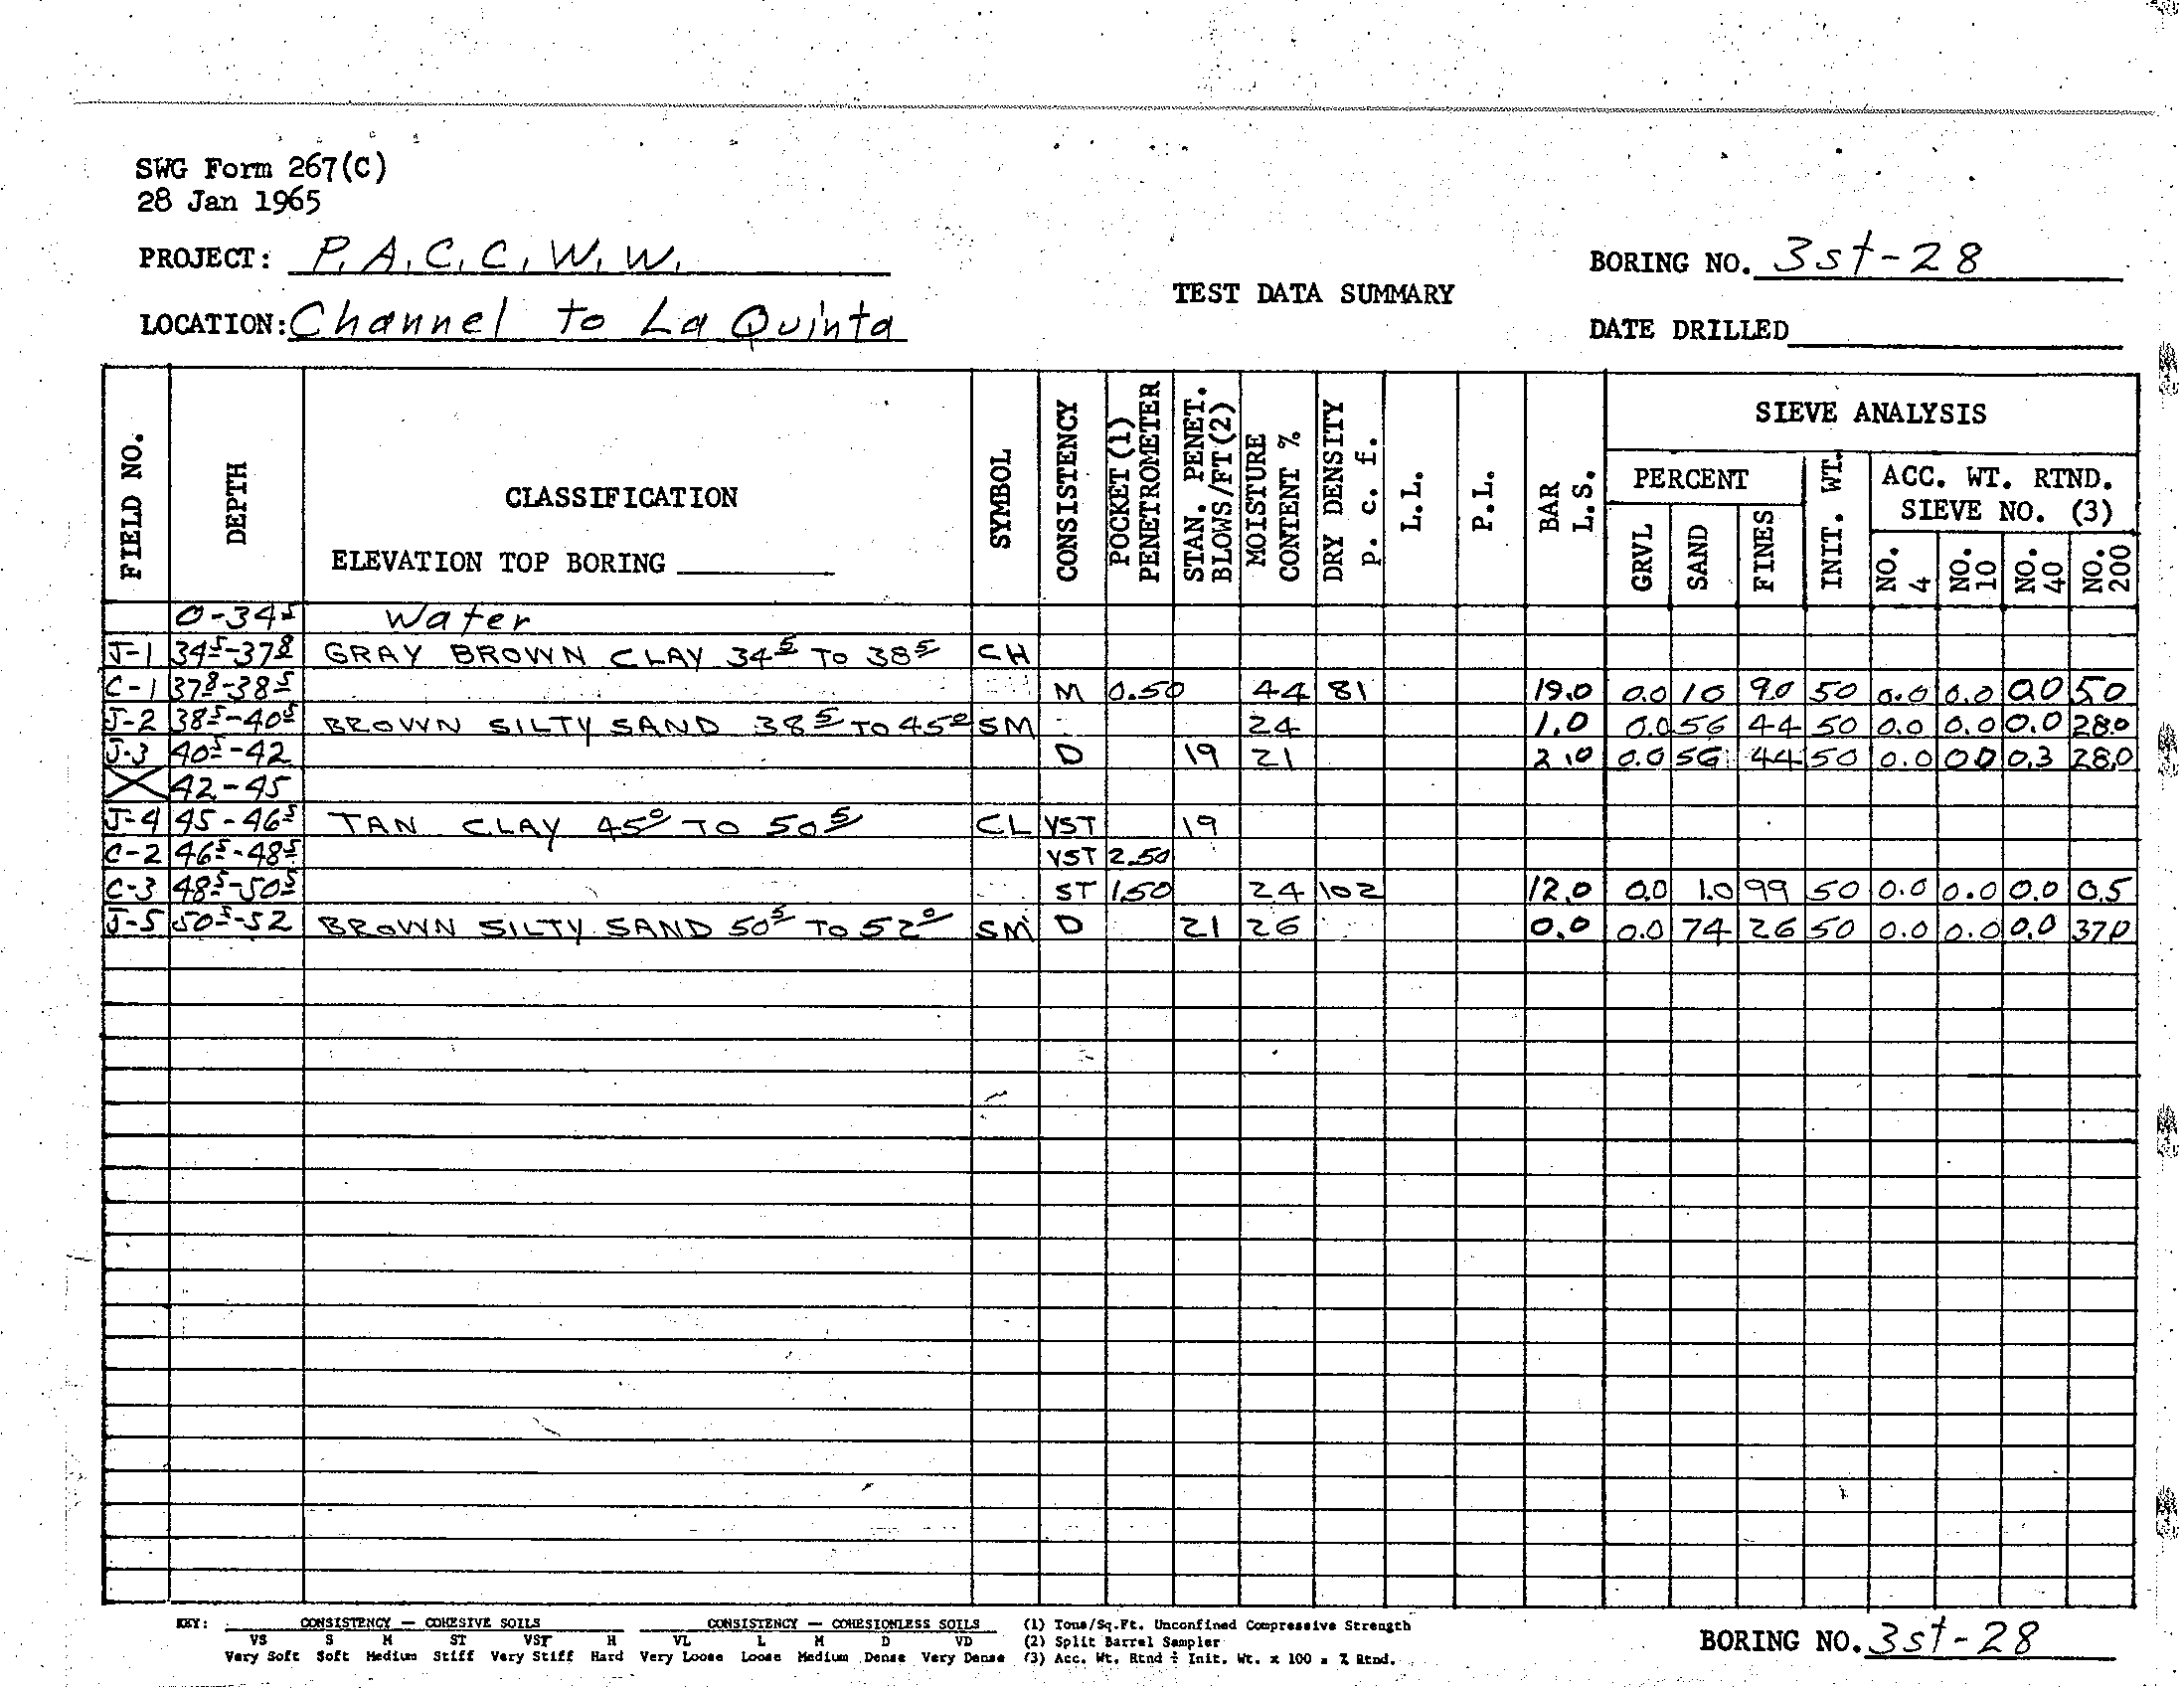 SWG Form 267(C)
28 Jan 1965
PROJECT: P.A.C.C.W.W.
BORING NO. 3st-28
TEST DATA SUMMARY
LOCATION: Channel to La Quinta
DATE DRILLED
FIELD NO. DEPTH CLASSIFICATION SYMBOL CONSISTENCY POCKET (1) PENETROMETER STAN. PENET. BLOWS/FT (2) MOISTURE CONTENT % DRY DENSITY p. c. f. L.L. P.L. BAR L.S. SIEVE ANALYSIS
PERCENT GRVL SAND FINES INIT. WT. ACC. WT. RTND. SIEVE NO. (3) NO. 4 NO. 10 NO. 40 NO. 200
ELEVATION TOP BORING
0-34⁵ Water
J-1 34⁵-37⁸ GRAY BROWN CLAY 34⁵ TO 38⁵ CH
C-1 37⁸-38⁵ M 0.50 44 81 19.0 0.0 10 90 50 0.0 0.0 0.0 5.0
J-2 38⁵-40⁵ BROWN SILTY SAND 38⁵ TO 45⁰ SM 24 1.0 0.0 56 44 50 0.0 0.0 0.0 28.0
J-3 40⁵-42 D 19 21 2.0 0.0 56 44 50 0.0 0.0 0.3 28.0
X 42-45
J-4 45-46⁵ TAN CLAY 45⁰ TO 50⁵ CL VST 19
C-2 46⁵-48⁵ VST 2.50
C-3 48⁵-50⁵ ST 1.50 24 102 12.0 0.0 1.0 99 50 0.0 0.0 0.0 0.5
J-5 50⁵-52 BROWN SILTY SAND 50⁵ TO 52⁰ SM D 21 26 0.0 0.0 74 26 50 0.0 0.0 0.0 37.0
KEY: CONSISTENCY — COHESIVE SOILS CONSISTENCY — COHESIONLESS SOILS (1) Tons/Sq.Ft. Unconfined Compressive Strength
VS S M ST VST H VL L M D VD (2) Split Barrel Sampler
Very Soft Soft Medium Stiff Very Stiff Hard Very Loose Loose Medium Dense Very Dense (3) Acc. Wt. Rtnd ÷ Init. Wt. x 100 = % Rtnd.
BORING NO. 3st-28